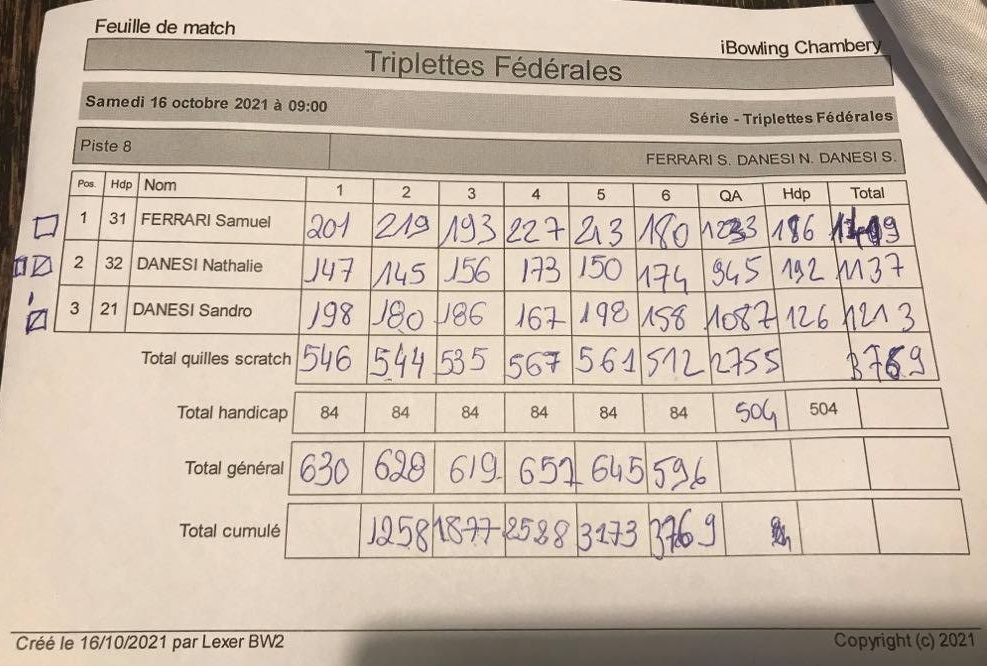 Feuille de match
iBowling Chambery
Triplettes Fédérales
Samedi 16 octobre 2021 à 09:00
Série - Triplettes Fédérales
Piste 8
FERRARI S. DANESI N. DANESI S.
Pos. Hdp Nom 1 2 3 4 5 6 QA Hdp Total
1 31 FERRARI Samuel 201 219 193 227 213 180 1233 186
2 32 DANESI Nathalie 147 145 156 173 150 174 945 192 1137
3 21 DANESI Sandro 198 180 186 167 198 158 1087 126 1213
Total quilles scratch 546 544 535 567 561 512 2755 3769
Total handicap 84 84 84 84 84 84 504 504
Total général 630 628 619 651 645 596
Total cumulé 1258 1877 2528 3173 3769
Créé le 16/10/2021 par Lexer BW2
Copyright (c) 2021